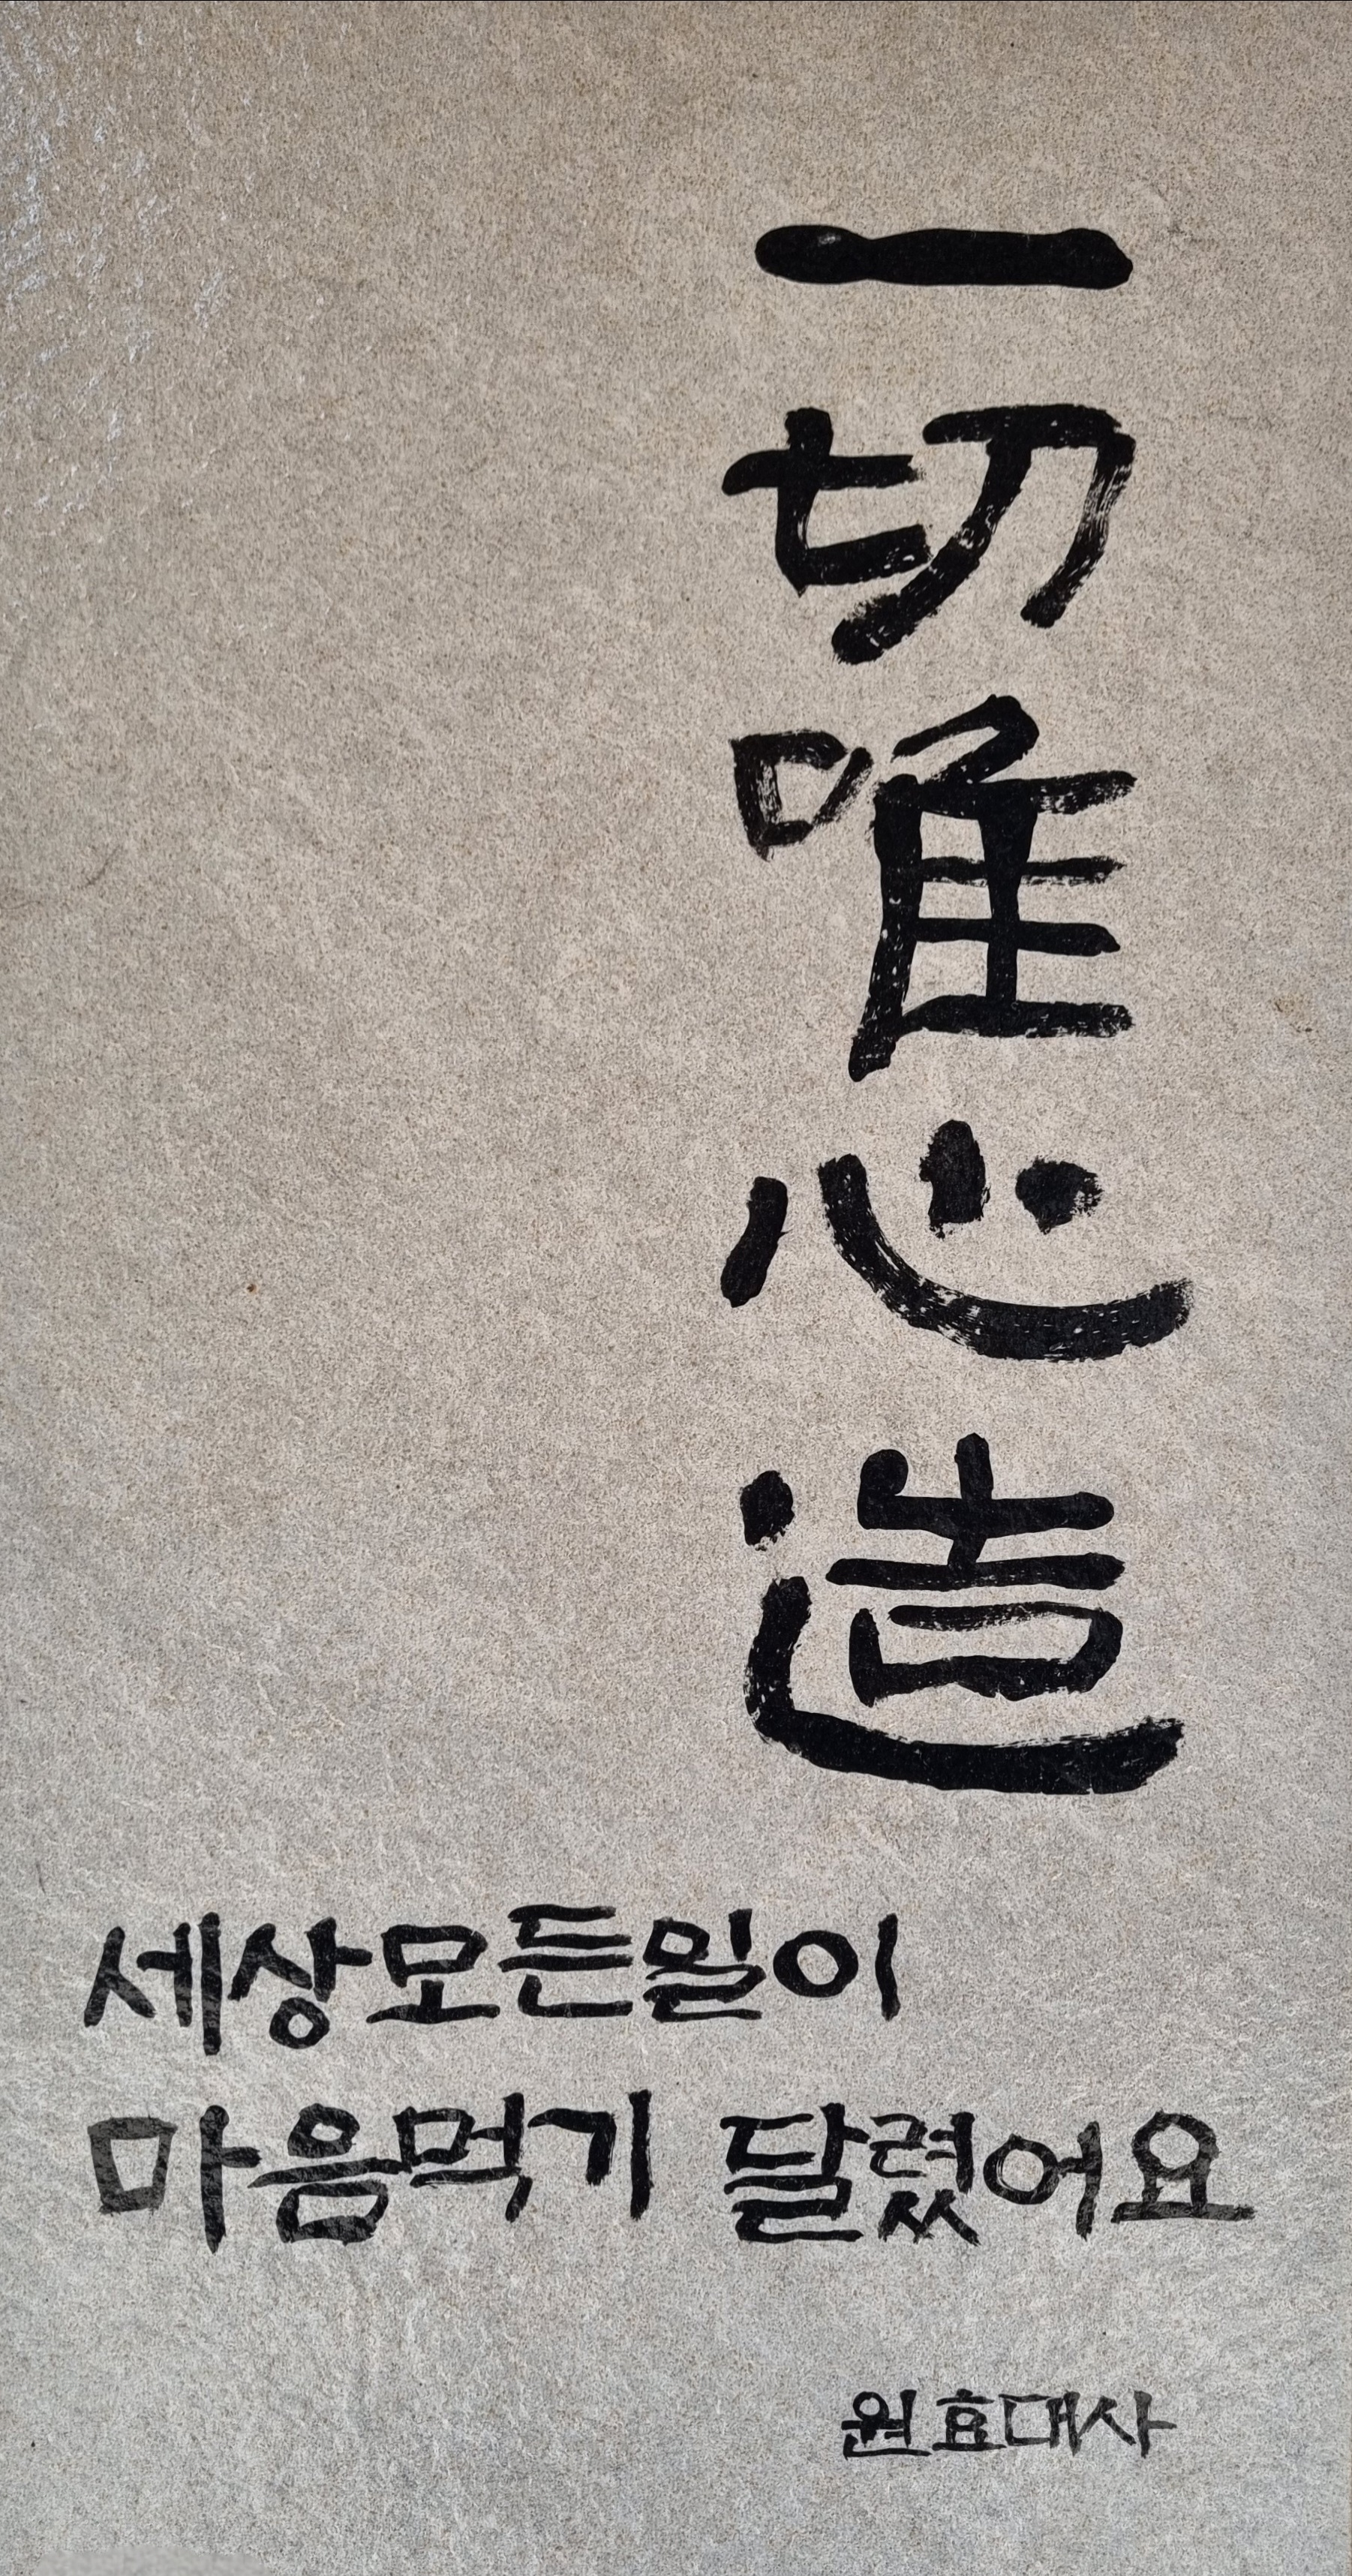 一切唯心造
세상모든일이
마음먹기 달렸어요
원효대사